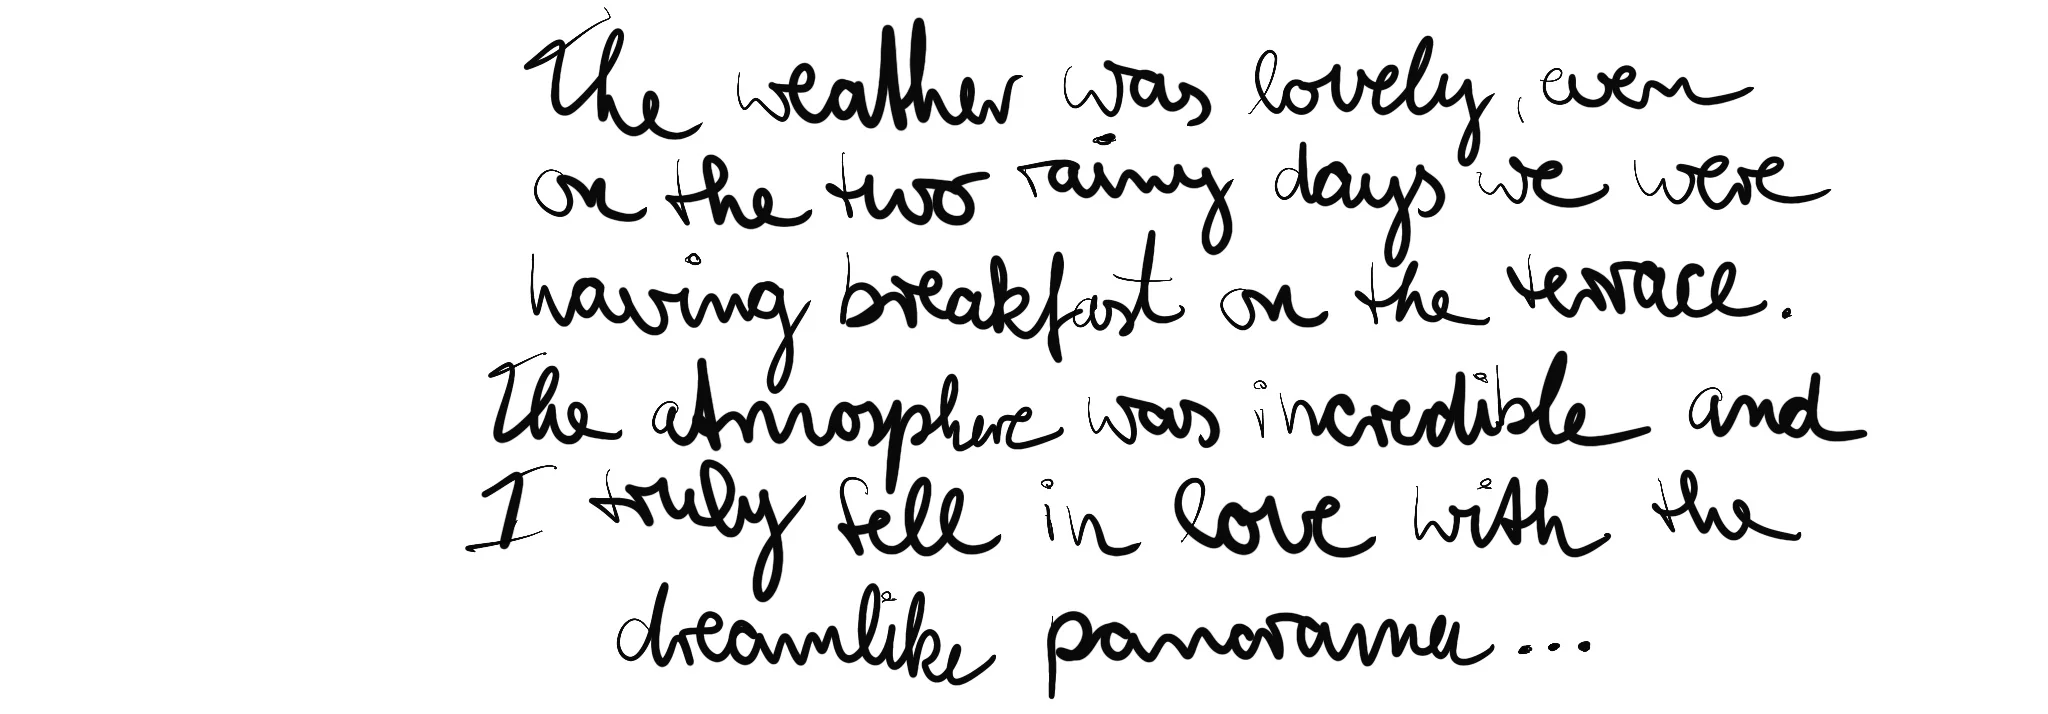 The weather was lovely, even
on the two rainy days we were
having breakfast on the terrace.
The atmosphere was incredible and
I truly fell in love with the
dreamlike panorama...